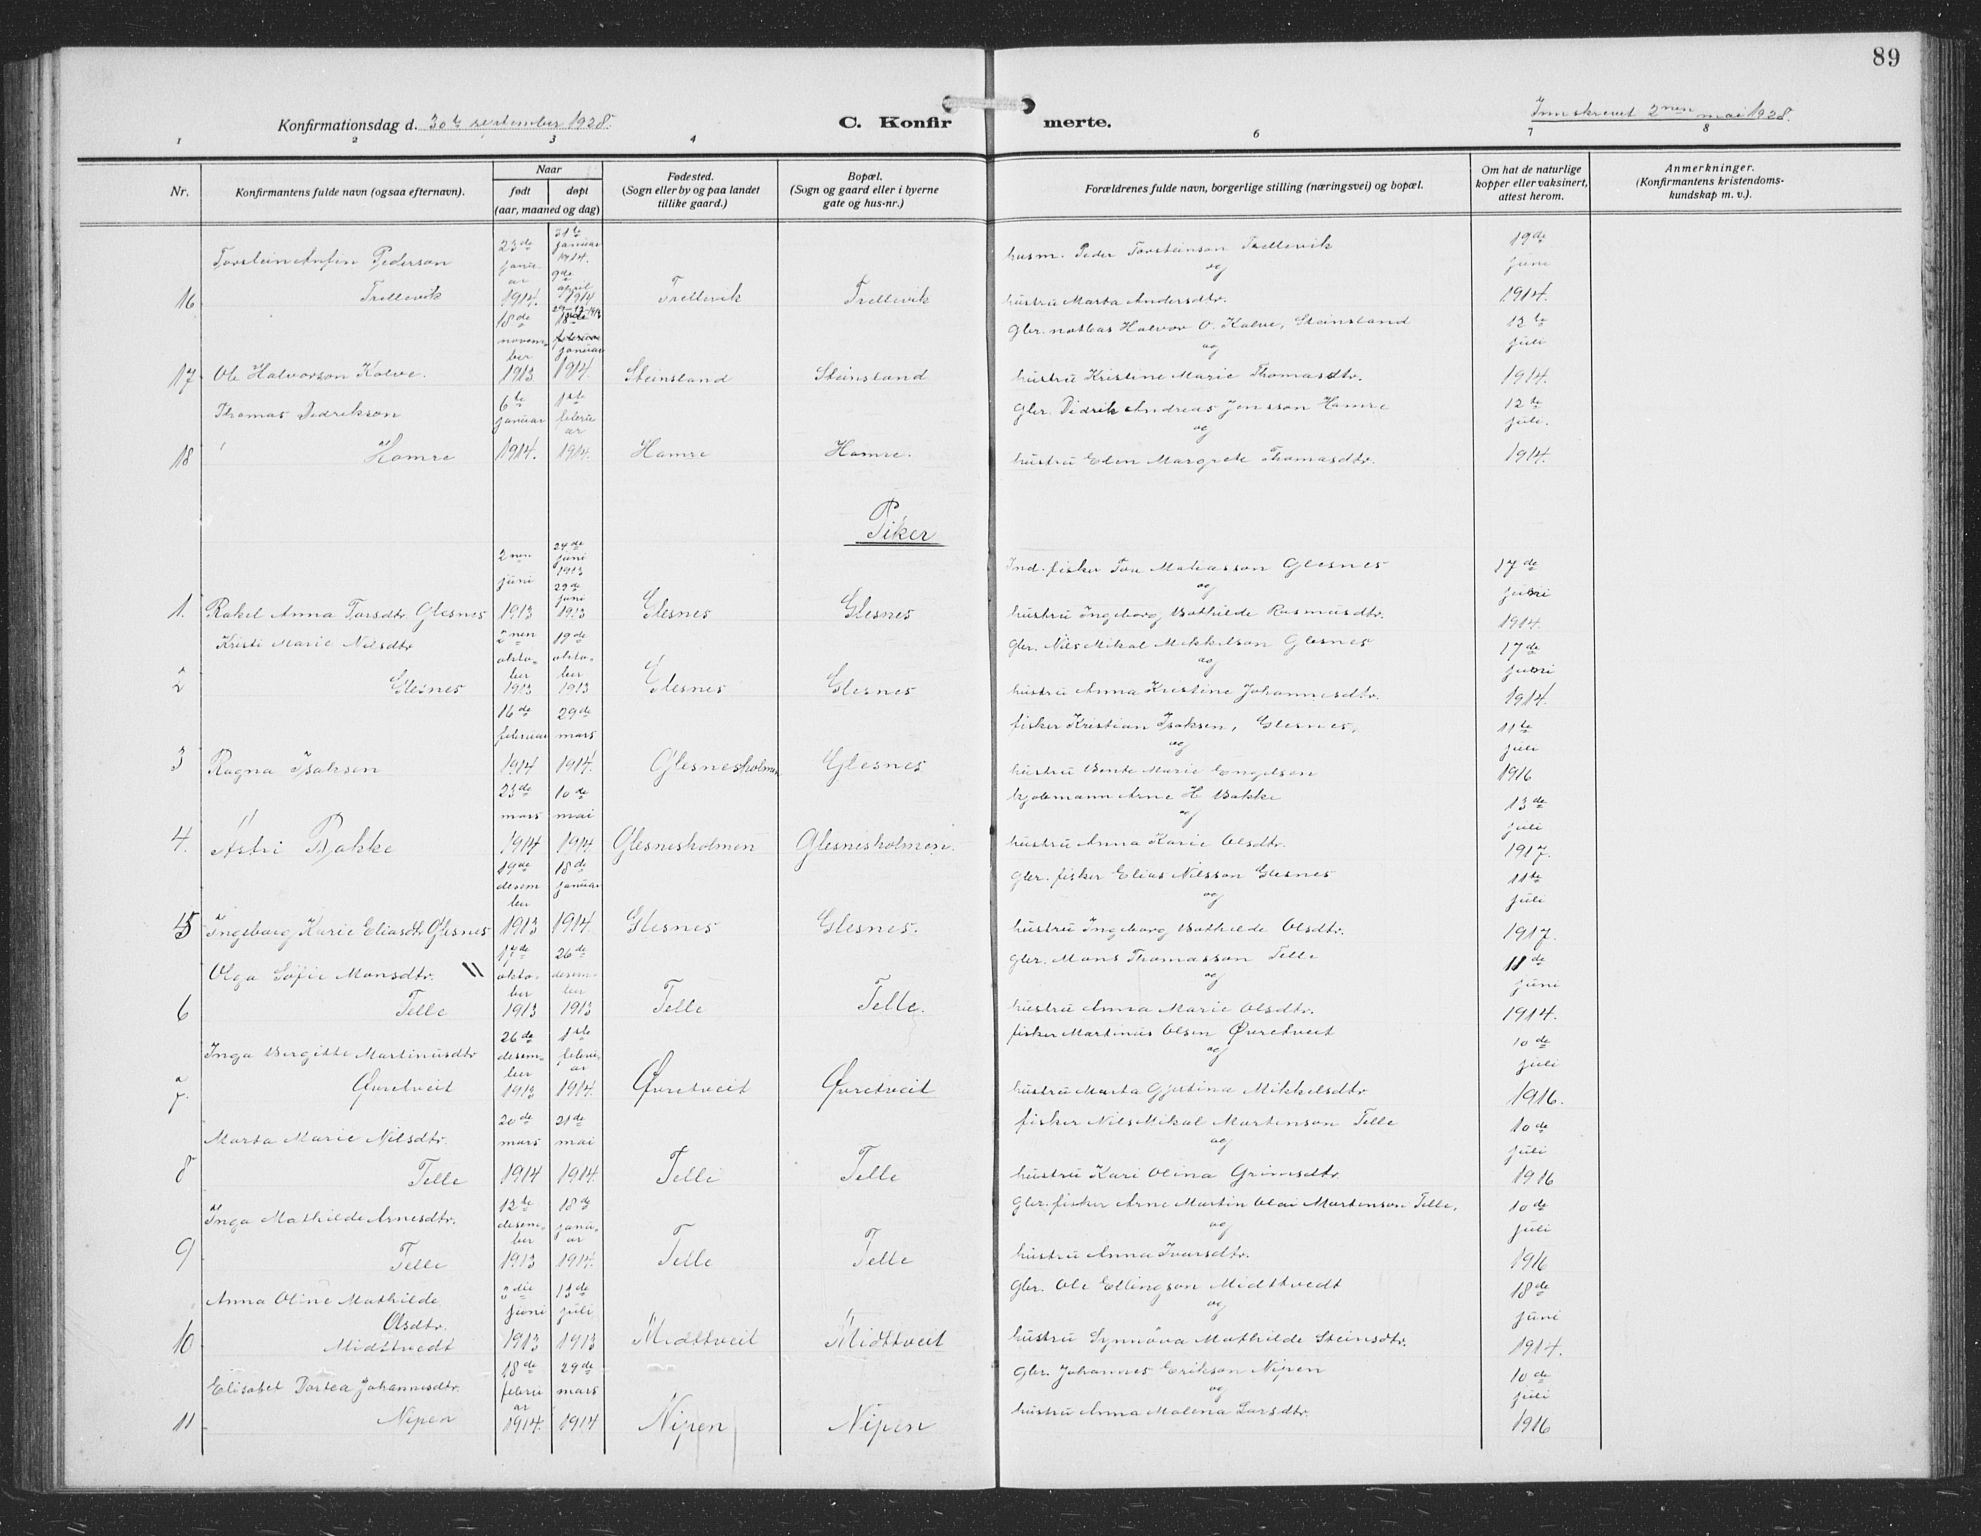 89
Konfirmationsdag d. 30te september 1928.
C. Konfirmerte.
Innskrevet 2nen mai 1928.
1 2 3 4 6 7 8
Nr.
Konfirmantens fulde navn (ogsaa efternavn).
Naar
født
døpt
(aar, maaned og dag)
Fødested.
(Sogn eller by og paa landet
tillike gaard.)
Bopæl.
(Sogn og gaard eller i byerne
gate og hus-nr.)
Forældrenes fulde navn, borgerlige stilling (næringsvei) og bopæl.
Om hat de naturlige
kopper eller vaksinert,
attest herom.
Anmerkninger.
(Konfirmantens kristendoms-
kundskap m. v.).
16 Torstein Pederson Trellevik 23de januar 1914. 31te januar 1914. 9de april 1914 Trellevik Trellevik
husm. Peder Torsteinson Trellevik og hustru Marta Andersdtr. 19de juni 1914.
17 Ole Halvorson Kalve. 18de november 1913 januar 1914. Steinsland Steinsland
gbr. notbas Halvor O. Kalve, Steinsland og hustru Kristine Marie Thomasdtr. 12te juli 1914.
18 Thomas Didrikson Hamre 6te januar 1914. 1ste februar 1914. Hamre Hamre.
gbr. Didrik Andreas Jensson Hamre og hustru Elen Margrete Thomasdtr. 12te juli. 1914.
Piker
1. Rakel Anna Torsdtr Glesnes 2nen juni 1913 24de juni 1913 29de juni 1913 Glesnes Glesnes
Ind.fisker Tor Matiasson Glesnes og hustru Ingeborg Bothilde Rasmusdtr. 17de juni 1914.
2 Kristi Marie Nilsdtr Glesnes 2nen oktober 1913 19de oktober 1913 Glesnes Glesnes
gbr. Nils Mikal Mikkelson Glesnes og hustru Anna Kristine Johannesdtr. 17de juni 1914.
3 Ragna Isaksen 16de februar 1914 29de mars 1914. Glesnesholmen Glesnes
fisker Kristian Isaksen, Glesnes, og hustru Bente Marie Engelson 11te juli 1916
4. Astri Bakke 23de mars 1914 10de mai 1914 Glesnesholmen Glesnesholmen.
Arne H Bakke og hustru Anna Karie Olsdtr. 13de juli 1917.
5 Ingeborg Karie Eliasdtr Glesnes 19de desember 1913 18de januar 1914. Glesnes Glesnes.
gbr. fisker Elias Nilsson Glesnes og hustru Ingeborg Bothilde Olsdtr. 11te juli 1917.
6 Olga Sofie Monsdtr. Telle 17de oktober 1913 26de desember 1913 Telle Telle.
gbr. Mons Thomasson Telle og hustru Anna Marie Olsdtr. 18de juni 1914.
7. Inga Bergitte Martinusdtr Øvretveit 26de desember 1913 1ste februar 1914. Øvretveit Øvretveit
fisker Martinus Olsen Øvretveit og hustru Marta Gjertina Mikkelsdtr 10de juli 1916.
8 Marta Marie Nilsdtr. Telle 20de mars 1914 21de mai 1914. Telle Telle
fisker Nils Mikal Mortenson Telle og hustru Kari Olina Grimsdtr. 10de juli 1916
9 Inga Mathilde Arnesdtr. Telle 12te desember 1913 18de januar 1914. Telle Telle
gbr. fisker Arne Martin Olai Mortenson Telle, og hustru Anna Ivarsdtr. 10de juli 1916
10 Anna Oline Mathilde Olsdtr. Midttvedt 3die juni 1913 13de juli 1913 Midttveit Midttveit
gbr. Ole Ellingson Midttvedt og hustru Synnöva Mathilde Steinsdtr. 18de juni 1914.
11 Elisabet Dortea Johannesdtr. Nipen 18de februar 1914. 29de mars 1914 Nipen Nipen
gbr. Johannes Erikson Nipen og hustru Anna Malena Larsdtr. 10de juli 1916